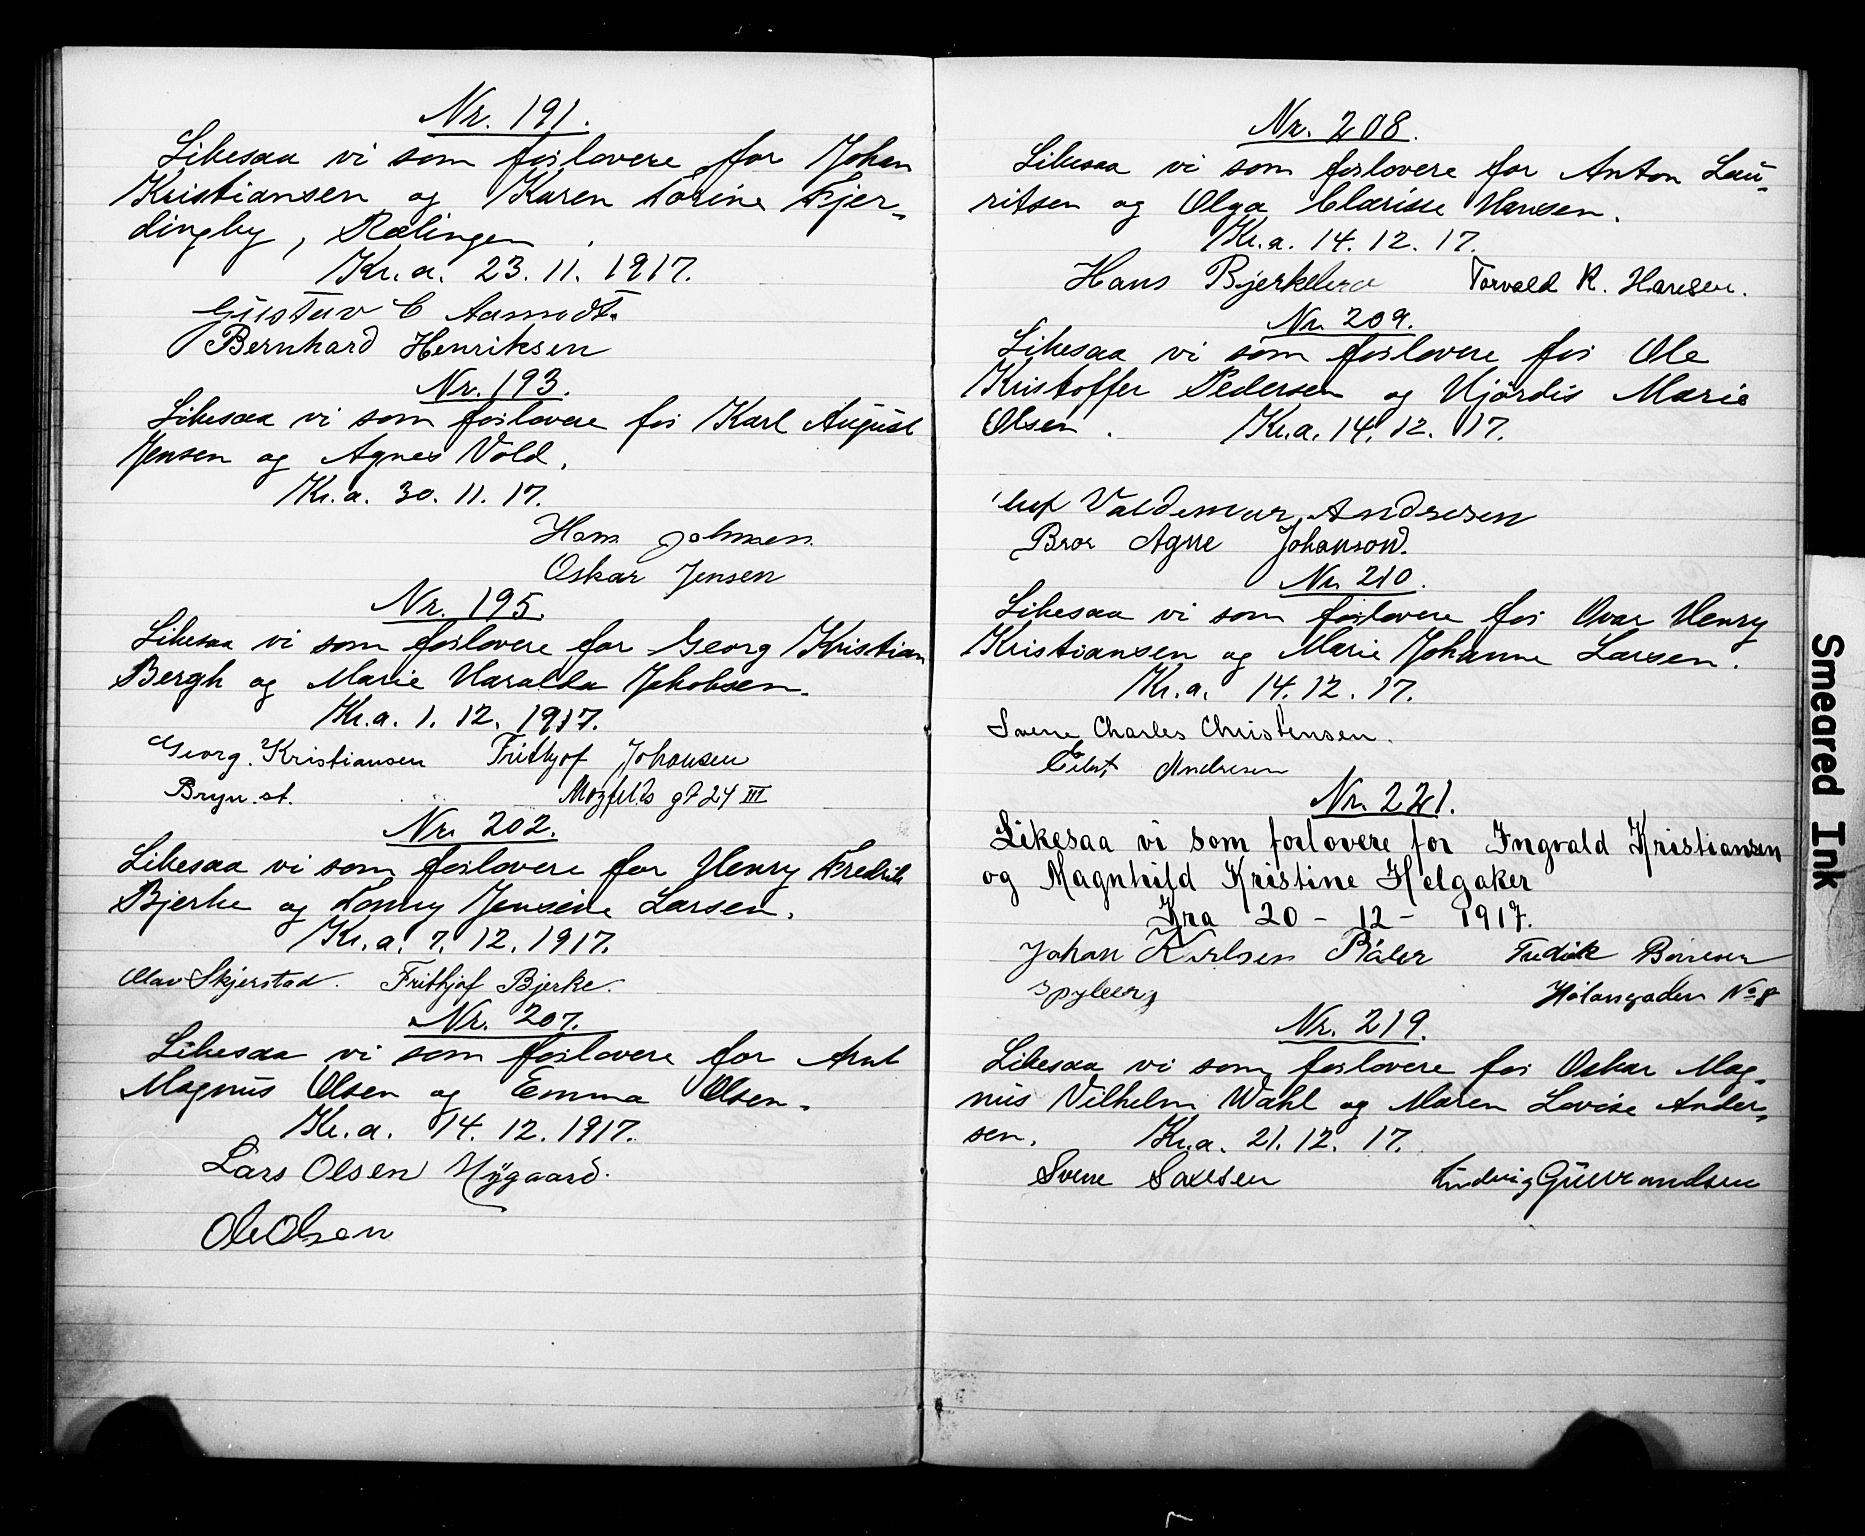 Nr. 191.
Likesaa vi som forlovere for Johan
Kristiansen og Karen Torine Fjer-
dingby, Rælingen.
Kr.a. 23. 11. 1917.
Gustav C Aamodt.
Bernhard Henriksen
Nr. 193.
Likesaa vi som forlovere for Karl August
Jensen og Agnes Vold.
Kr.a. 30. 11. 17.
Hans Johnsen
Oskar Jensen
Nr. 195.
Likesaa vi som forlovere for Georg Kristian
Bergh og Marie Haralda Jakobsen.
Kr.a. 1. 12. 1917.
Georg. Kristiansen Frithjof Johansen
Bryn. st. gt 24 III
Nr. 202.
Likesaa vi som forlovere for Henry Fredrik
Bjerke og Tonny Jensine Larsen.
Kr.a. 7. 12. 1917.
Olav Skjerstad. Frithjof Bjerke.
Nr. 207.
Likesaa vi som forlovere for Arnt
Magnus Olsen og Emma Olsen.
Kr.a. 14. 12. 1917.
Lars Olsen Nygaard.
Ole Olsen
Nr. 208.
Likesaa vi som forlovere for Anton Lau-
ritsen og Olga Clarisse Hansen.
Kr.a. 14. 12. 17.
Hans Torvald R. Hansen.
Nr. 209.
Likesaa vi som forlovere for Ole
Kristoffer Pedersen og Hjørdis Marie
Olsen. Kr.a. 14. 12. 17.
Valdemar Andresen
Bror Agne Johanson.
Nr. 210.
Likesaa vi som forlovere for Ovar Henry
Kristiansen og Marie Johanne Larsen.
Kr.a. 14. 12. 17.
Svene Charles Christensen.
Andresen
Nr. 221.
Likesaa vi som forlovere for Ingvald Kristiansen
og Magnhild Kristine Helgaker
Kra 20 - 12 - 1917.
Johan Karlsen Fredrik
No 8
Nr. 219.
Likesaa vi som forlovere for Oskar Mag-
nus Vilhelm Wahl og Maren Lovise Ander-
sen. Kr.a. 21. 12. 17.
Svene Ludvig
Smeared Ink